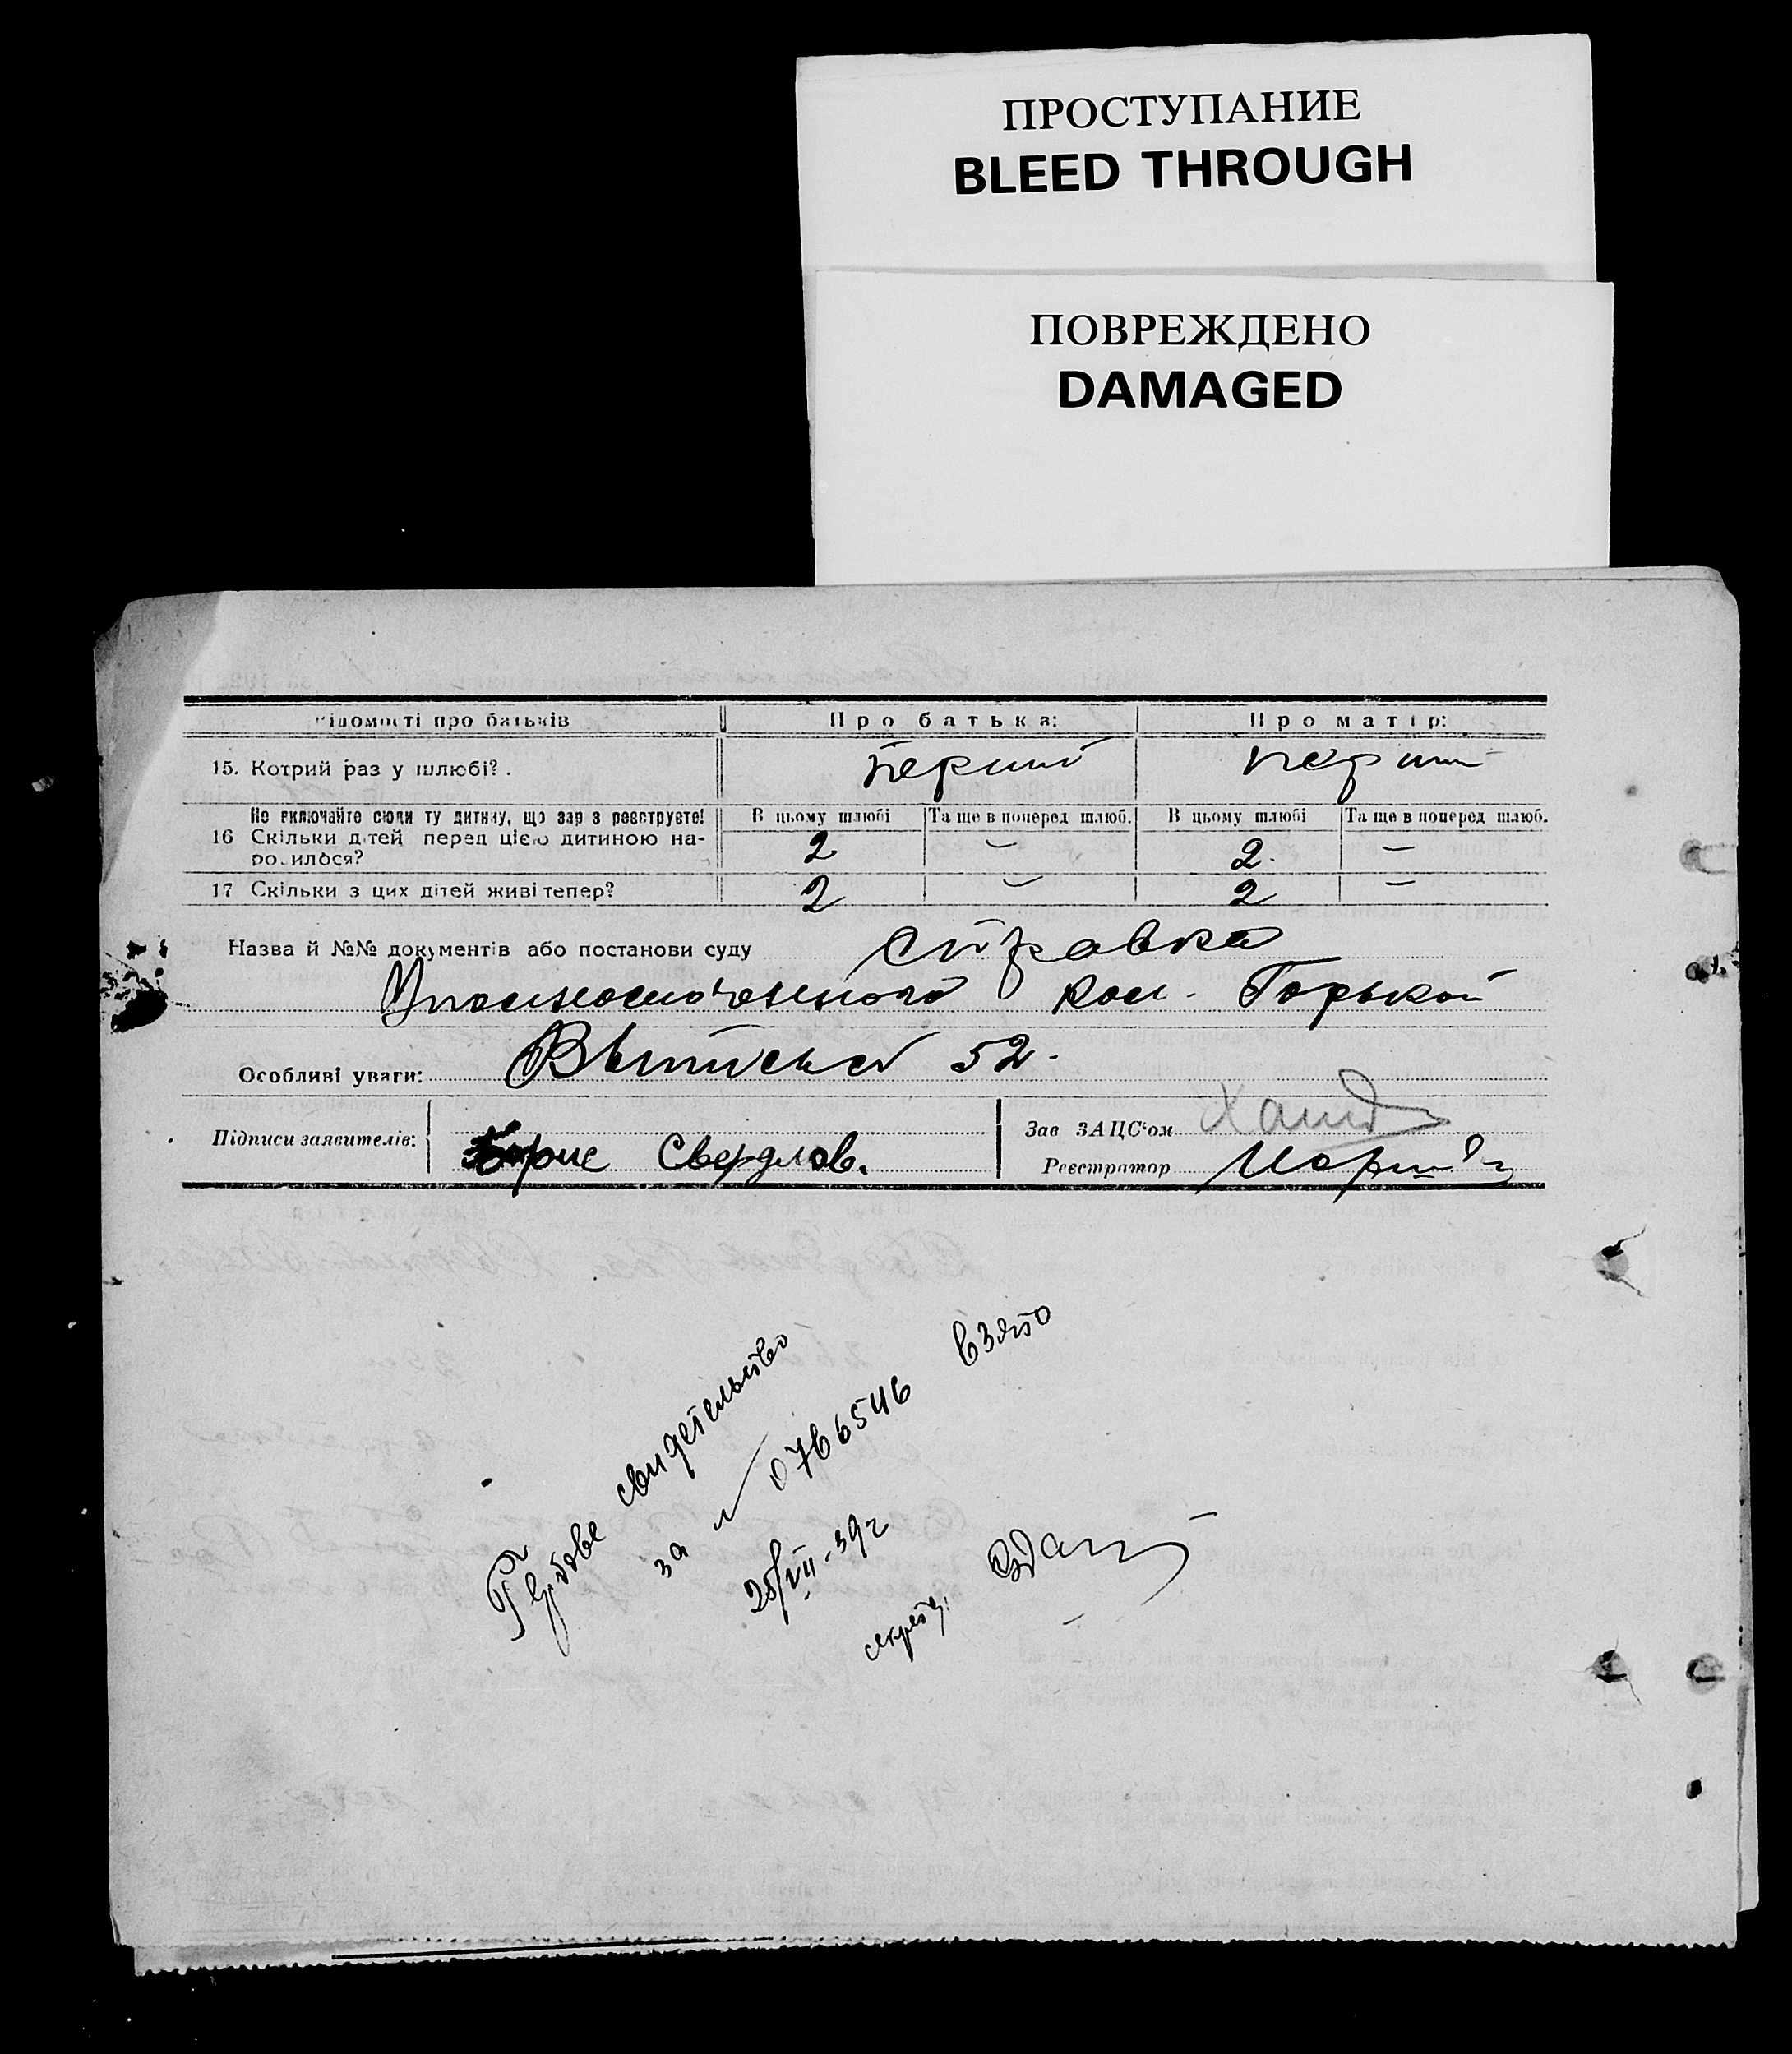 ПРОСТУПАНИЕ
BLEED THROUGH
ПОВРЕЖДЕНО
DAMAGED
Відомості про батьків Про батька: Про матір:
15. Котрий раз у шлюбі? . перший перший
Не включайте сюди ту дитину, що зараз реєструєте! В цьому шлюбі Та ще в поперед шлюб. В цьому шлюбі Та ще в поперед шлюб.
16 Скільки дітей перед цією дитиною на- 2 – 2. –
родилося?
17 Скільки з цих дітей живі тепер? 2 – 2 –
Назва й №№ документів або постанови суду справка
Уполномоченного Горькой
Особливі уваги: 52.
Підписи заявителів: Борис Свердлов.
Зав ЗАЦС‘ом
Реєстратор
свидетельство
за № 0766546 взято
28/VII-39 г
секрет.